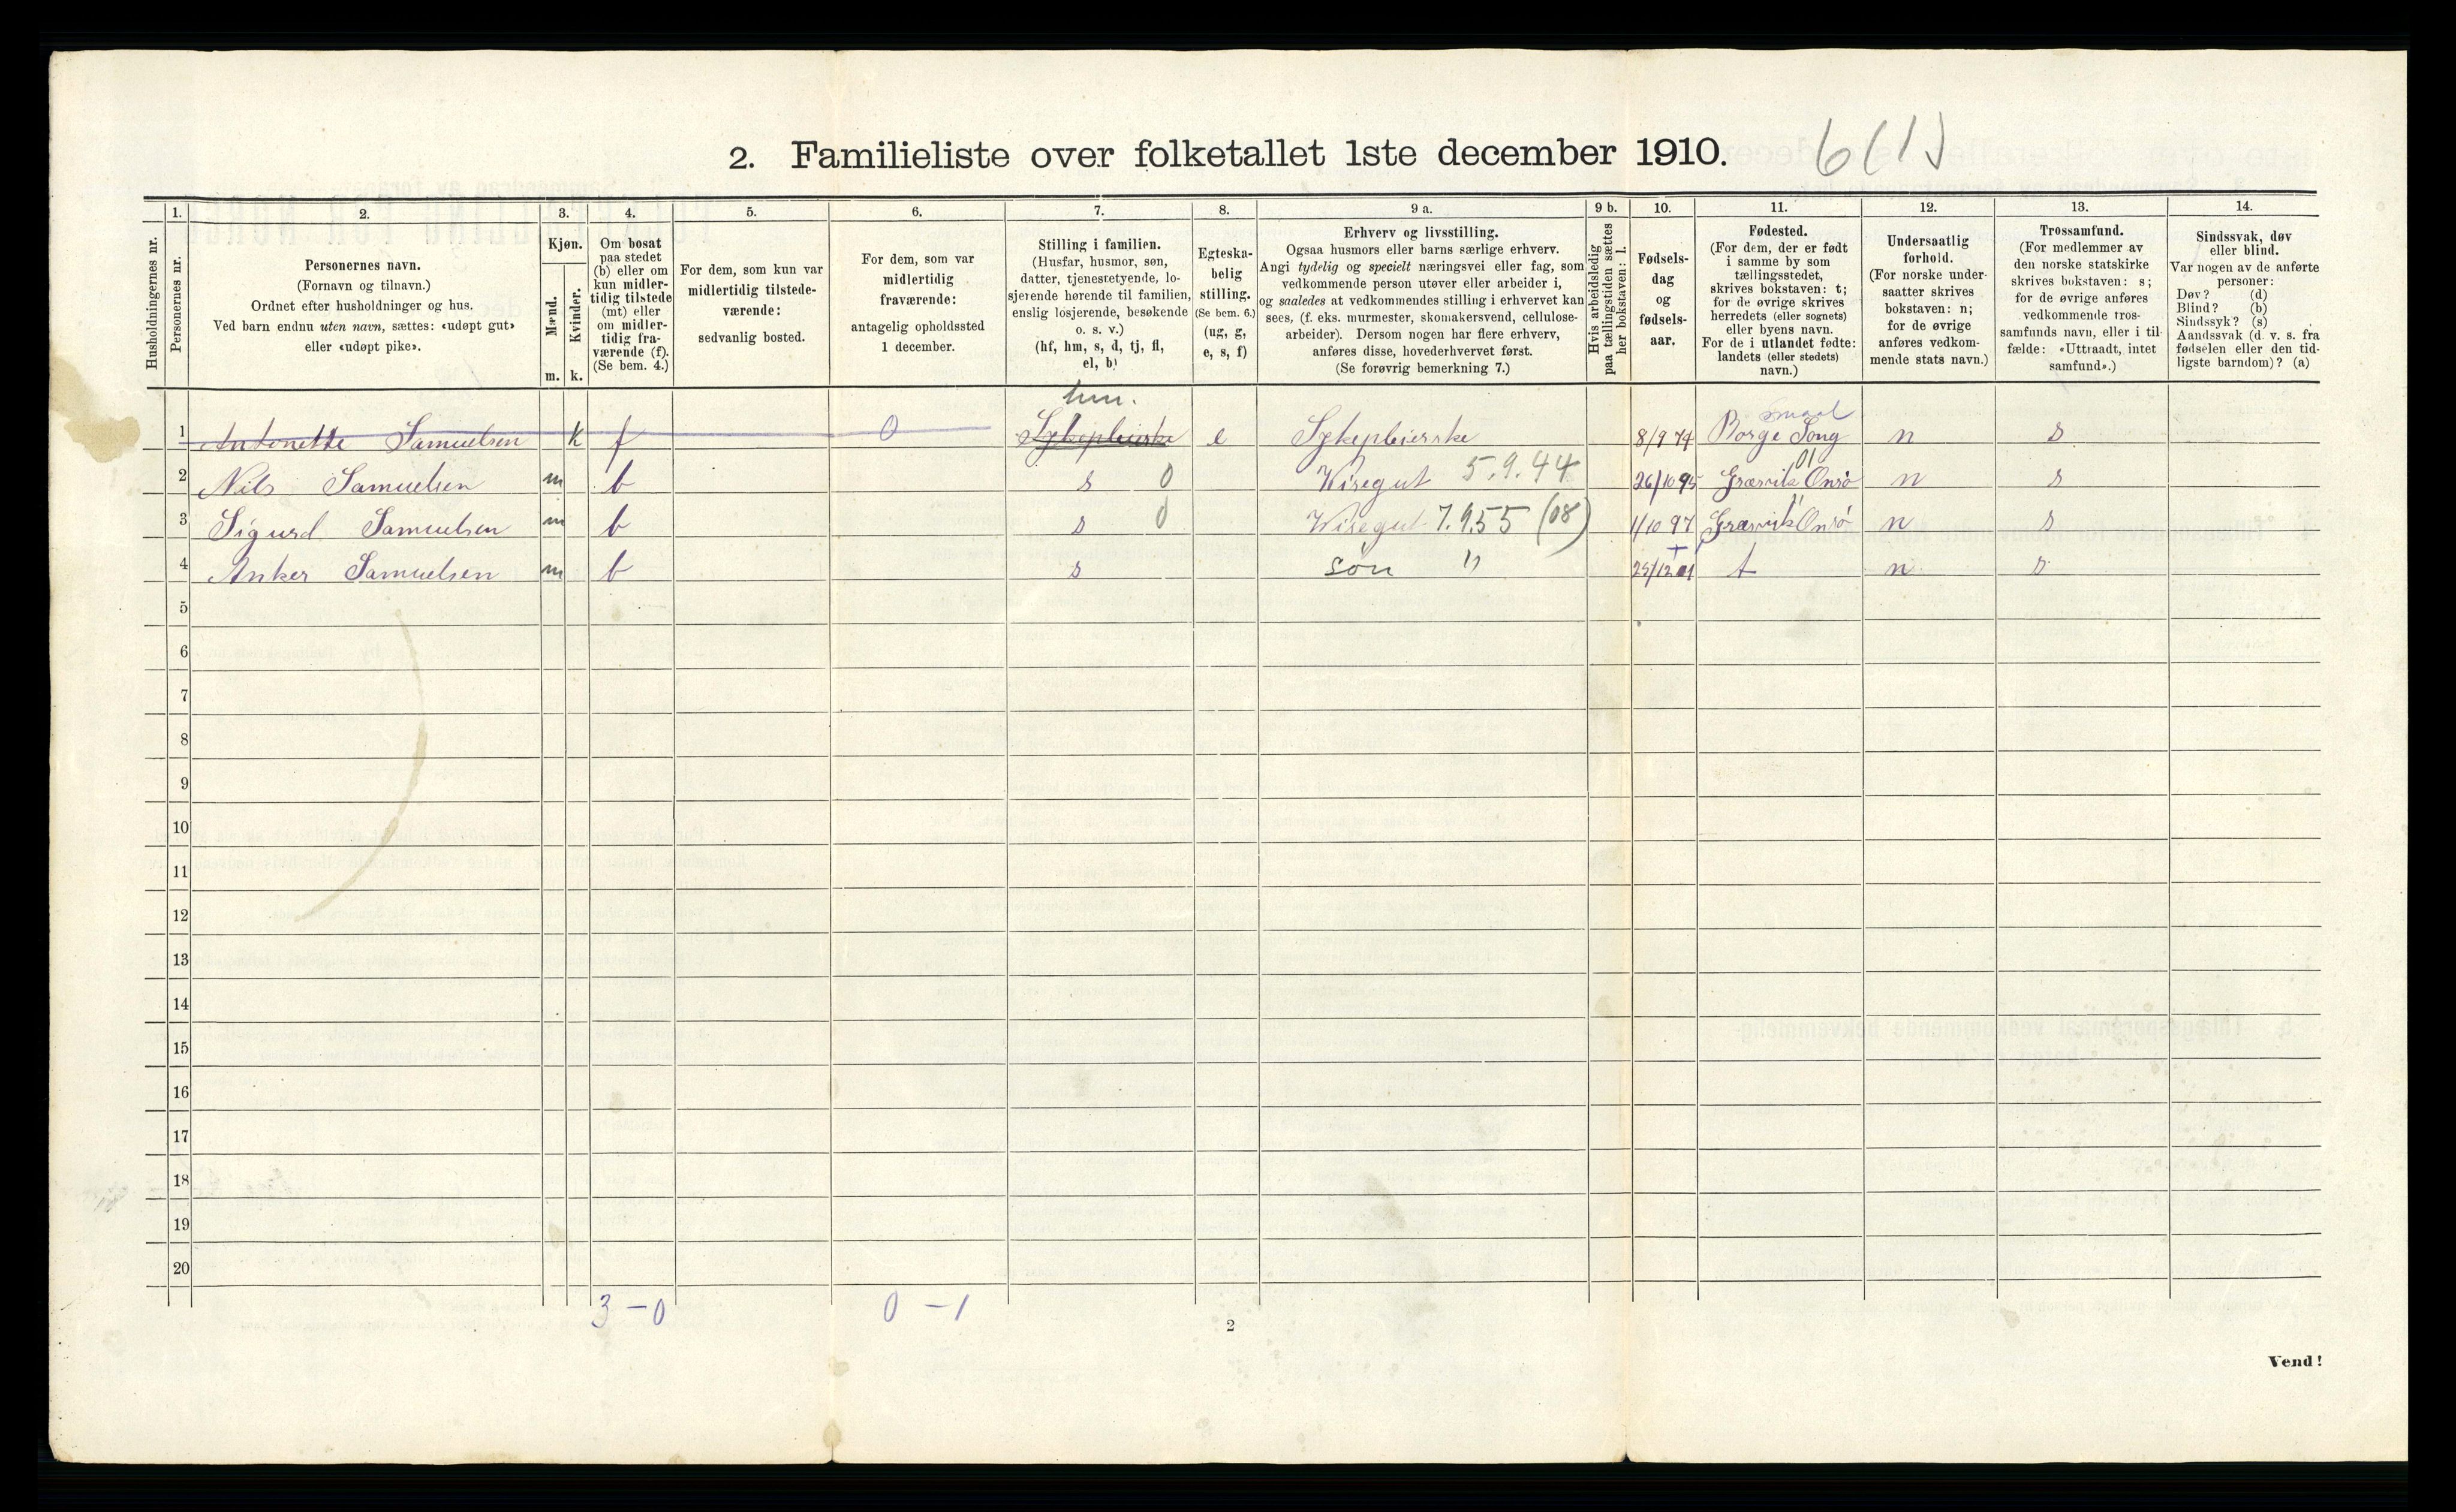 2. Familieliste over folketallet 1ste december 1910. 6(1)
1. 2. 3. 4. 5. 6. 7. 8. 9 a. 9 b. 10. 11. 12. 13. 14.
Husholdningernes nr.
Personernes nr.
Personernes navn.
(Fornavn og tilnavn.)
Ordnet efter husholdninger og hus.
Ved barn endnu uten navn, sættes: «udøpt gut»
eller «udøpt pike».
Kjøn.
Mænd.
Kvinder.
m. k.
Om bosat
paa stedet
(b) eller om
kun midler-
tidig tilstede
(mt) eller
om midler-
tidig fra-
værende (f).
(Se bem. 4.)
For dem, som kun var
midlertidig tilstede-
værende:
sedvanlig bosted.
For dem, som var
midlertidig
fraværende:
antagelig opholdssted
1 december.
Stilling i familien.
(Husfar, husmor, søn,
datter, tjenestetyende, lo-
sjerende hørende til familien,
enslig losjerende, besøkende
o. s. v.)
(hf, hm, s, d, tj, fl,
el, b)
Egteska-
belig
stilling.
(Se bem. 6.)
(ug, g,
e, s, f)
Erhverv og livsstilling.
Ogsaa husmors eller barns særlige erhverv.
Angi tydelig og specielt næringsvei eller fag, som
vedkommende person utøver eller arbeider i,
og saaledes at vedkommendes stilling i erhvervet kan
sees, (f. eks. murmester, skomakersvend, cellulose-
arbeider). Dersom nogen har flere erhverv,
anføres disse, hovederhvervet først.
(Se forøvrig bemerkning 7.)
Hvis arbeidsledig
paa tællingstiden sættes
her bokstaven: l.
Fødsels-
dag
og
fødsels-
aar.
Fødested.
(For dem, der er født
i samme by som
tællingsstedet,
skrives bokstaven: t;
for de øvrige skrives
herredets (eller sognets)
eller byens navn.
For de i utlandet fødte:
landets (eller stedets)
navn.)
Undersaatlig
forhold.
(For norske under-
saatter skrives
bokstaven: n;
for de øvrige
anføres vedkom-
mende stats navn.)
Trossamfund.
(For medlemmer av
den norske statskirke
skrives bokstaven: s;
for de øvrige anføres
vedkommende tros-
samfunds navn, eller i til-
fælde: «Uttraadt, intet
samfund».)
Sindssvak, døv
eller blind.
Var nogen av de anførte
personer:
Døv? (d)
Blind? (b)
Sindssyk? (s)
Aandssvak (d. v. s. fra
fødselen eller den tid-
ligste barndom)? (a)
hm.
1 Antonette Samuelsen k f 0 Sykepleierske e Sykepleierske 8/9 74 Borge Sogn n s
2 Nils Samuelsen m b s 0 Visegut 5.9.44 26/10 95 Græsvik Onsø n s
01
3 Sigurd Samuelsen m b s 0 Visegut 7.9.55 (08) 1/10 97 Græsvik Onsø n s
4 Anker Samuelsen m b s søn " 25/12 01 t n s
5
6
7
8
9
10
11
12
13
14
15
16
17
18
19
20
3 – 0 0 – 1
2
Vend!